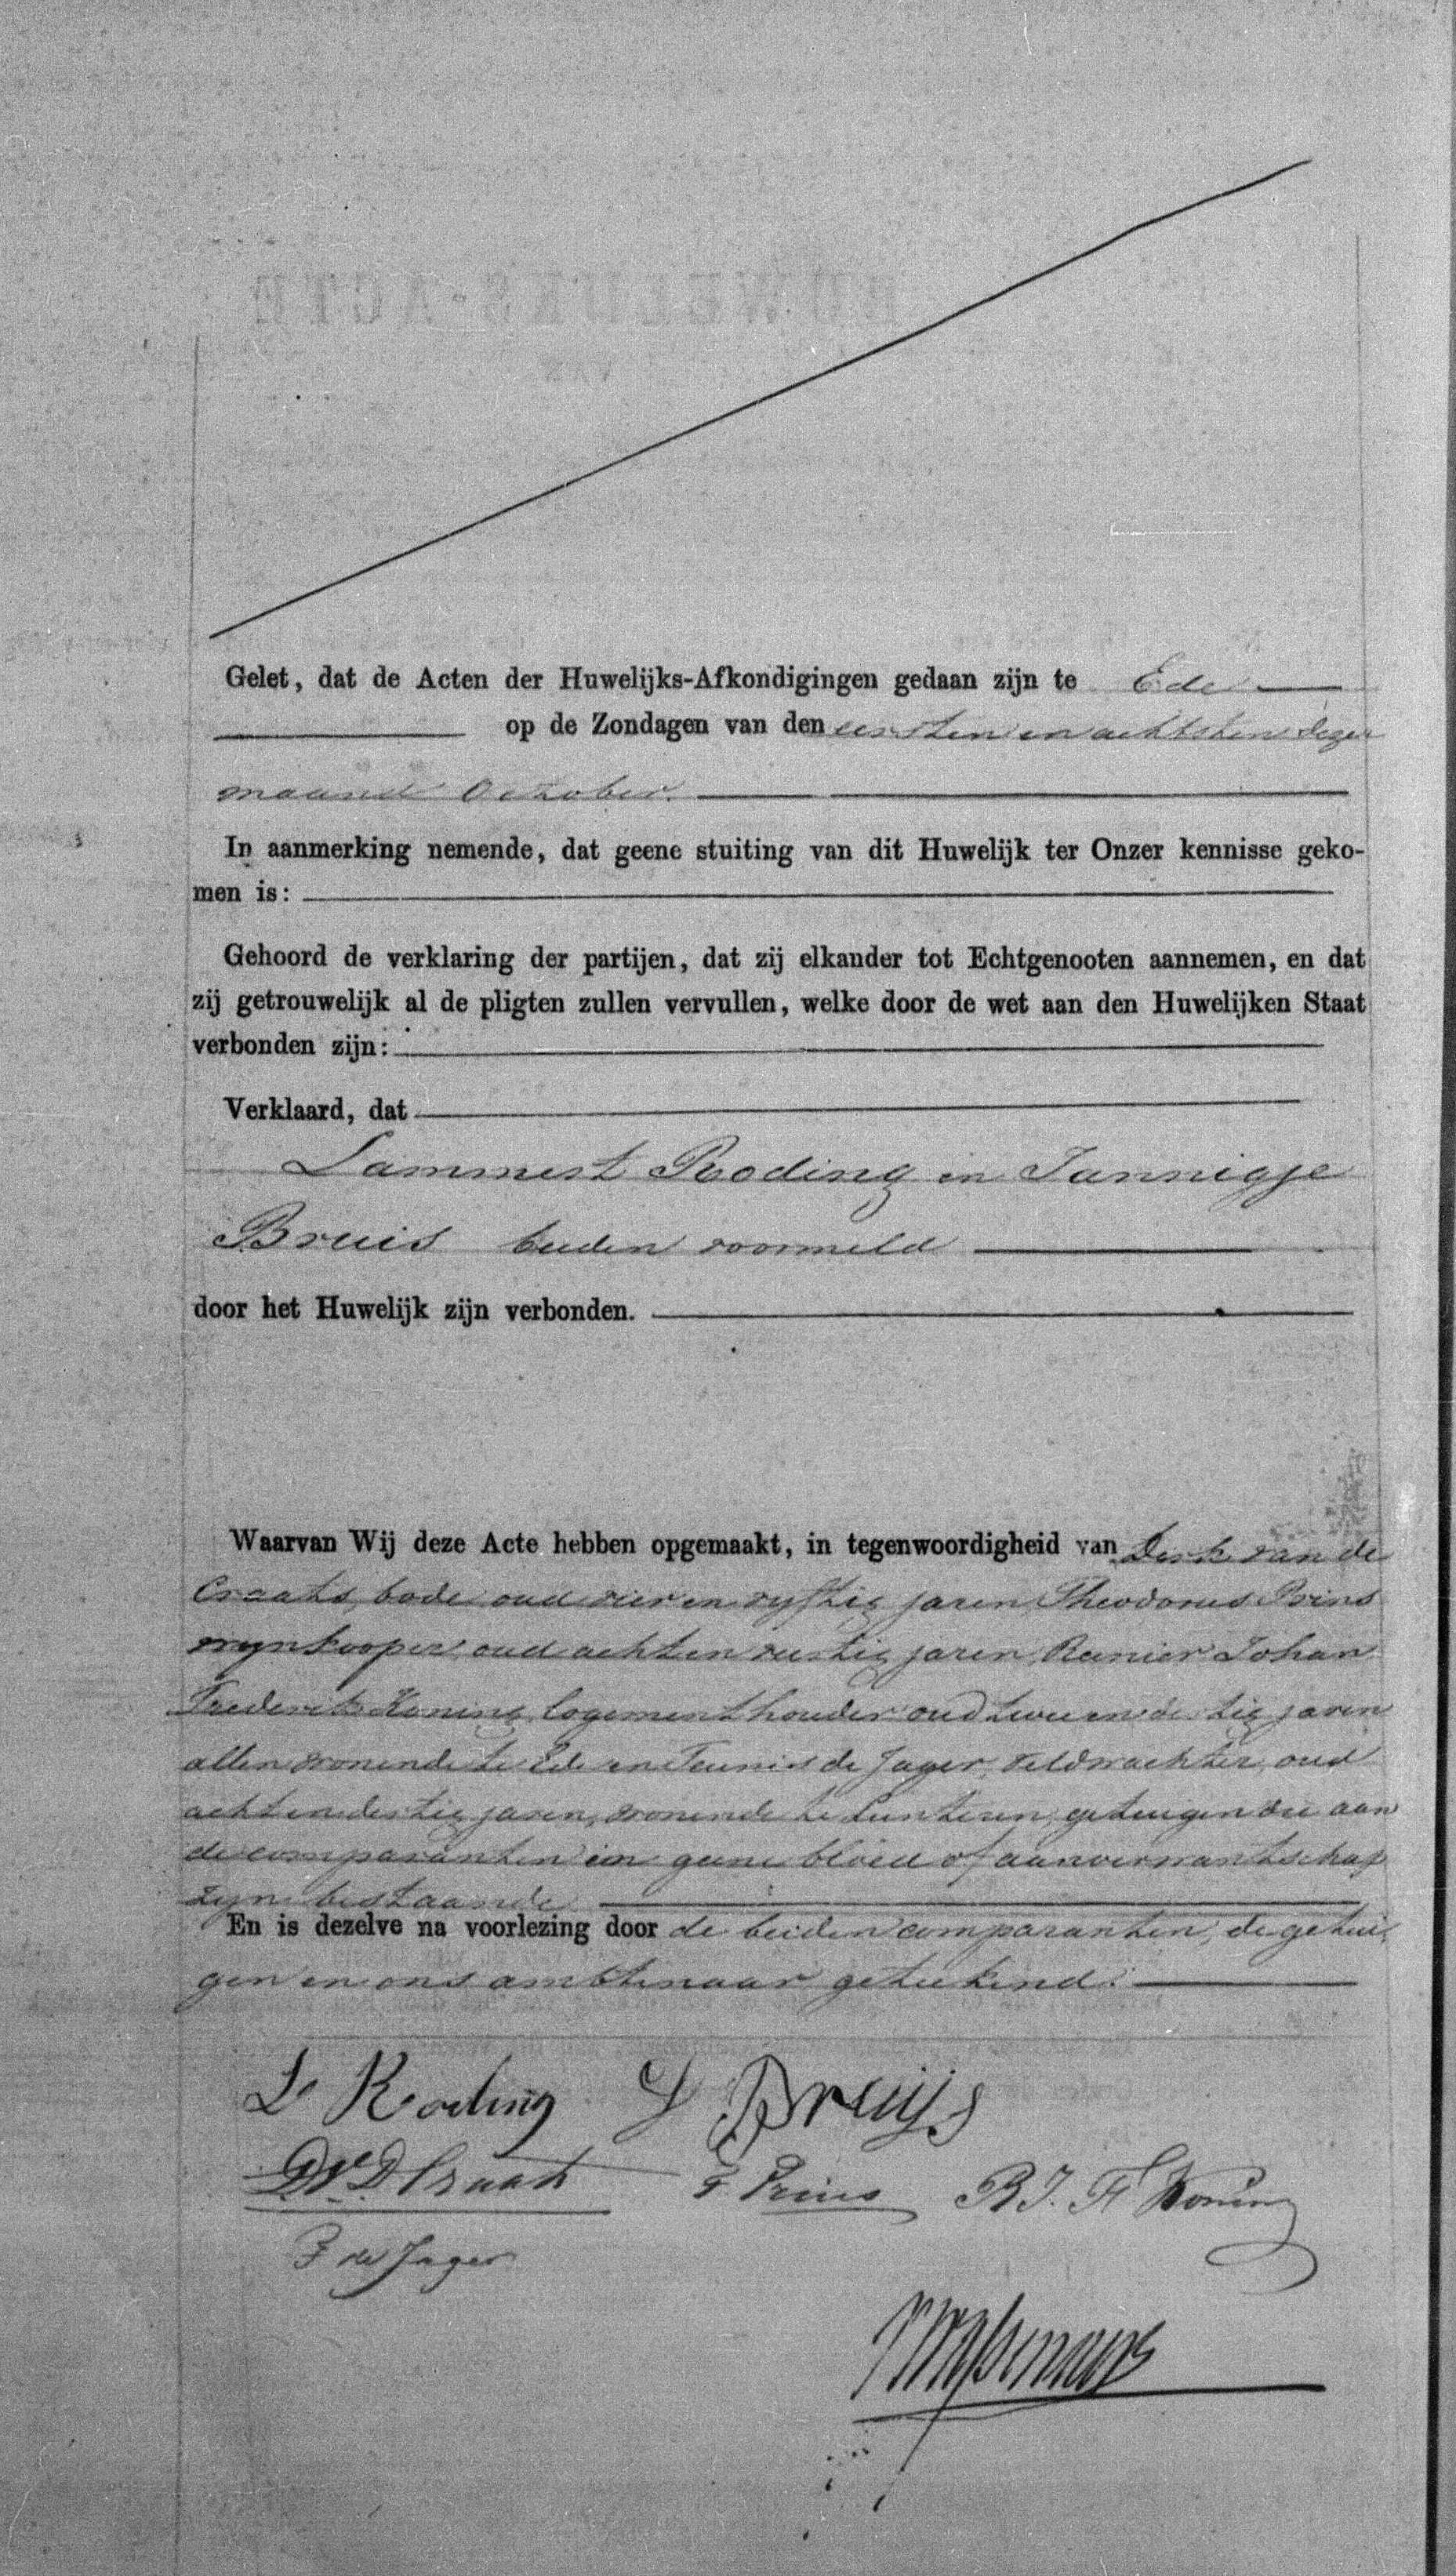 Gelet, dat de Acten der Huwelijks-Afkondigingen gedaan zijn te Ede
op de Zondagen van den eersten en achtsten dezer
maand October.
In aanmerking nemende, dat geene stuiting van dit Huwelijk ter Onzer kennisse geko-
men is:
Gehoord de verklaring der partijen, dat zij elkander tot Echtgenooten aannemen, en dat
zij getrouwelijk al de pligten zullen vervullen, welke door de wet aan den Huwelijken Staat
verbonden zijn:
Verklaard, dat
Lammert Roding en Jannigje
Bruis beiden voormeld
door het Huwelijk zijn verbonden.
Waarvan Wij deze Acte hebben opgemaakt, in tegenwoordigheid van Derk van de
Craats, bode oud vier en vyftig jaren, Theodorus Prins
wynkooper, oud acht en veertig jaren, Reinier Johan
Frederik Koning, logementhouder oud twee en dertig jaren
allen wonende te Ede en Teunis de Jager, veldwachter, oud
acht en dertig jaren, wonende te Lunteren, getuigen die aan
de comparanten in geene bloed of aanverwantschap
zyn bestaande
En is dezelve na voorlezing door de beiden comparanten, de getui
gen en ons ambtenaar geteekend.
L Roding J Bruijs
D v D Craats T Prins R J. F Koning
T de Jager